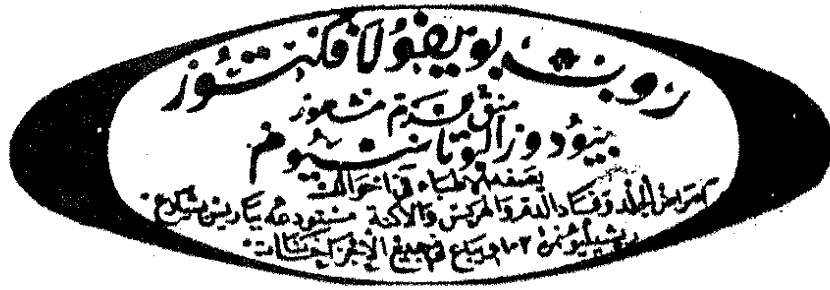 روب بويفو لافكتور
منقي للدم مشهور
بيودور البوتاسيوم
يصفه الاطباء في احوال
امراض الجلد وفساد الدم والهربس والاكلة مستودعه بباريس بشارع
ريشيليو نمرة ١٠٢ ويباع في جميع الاجزاخانات